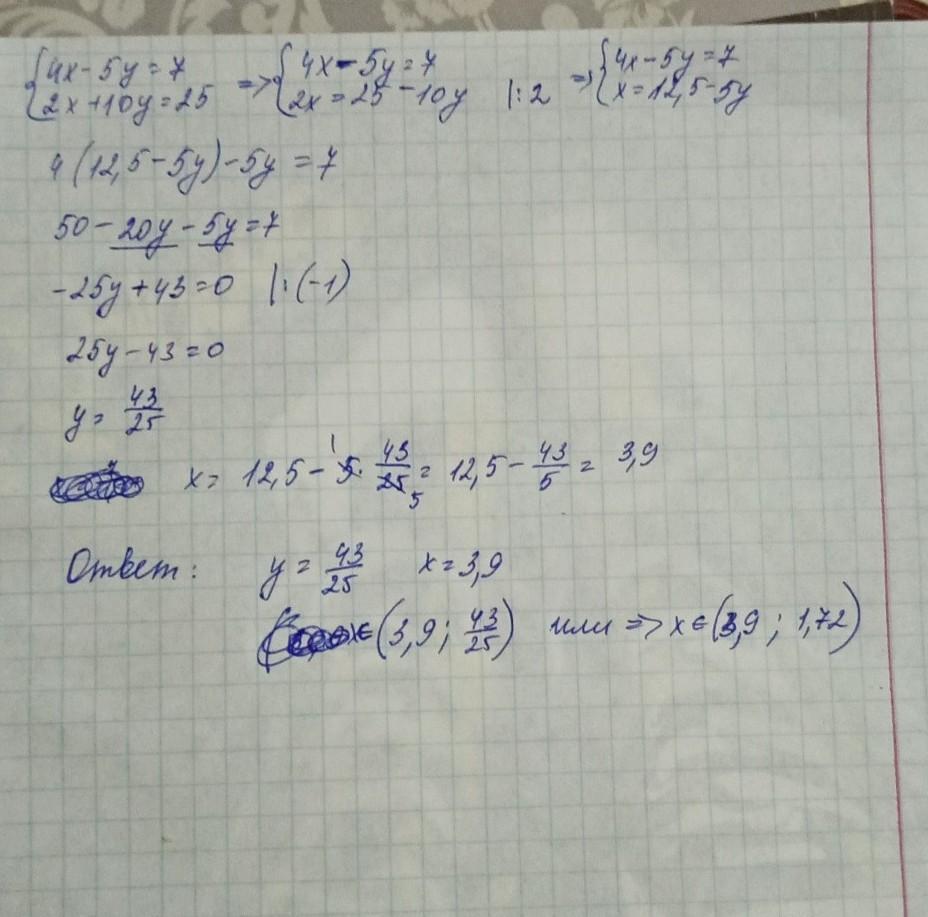 {4x-5y=7 => {4x-5y=7 => {4x-5y=7
{2x+10y=25 {2x=25-10y |:2 {x=12,5-5y
4(12,5-5y)-5y=7
50-20y-5y=7
-25y+43=0 |:(-1)
25y-43=0
y= 43/25
x= 12,5- 5· 43/25 = 12,5- 43/5 = 3,9
Ответ: y= 43/25 x=3,9
x∈(3,9; 43/25) или => x∈(3,9; 1,72)